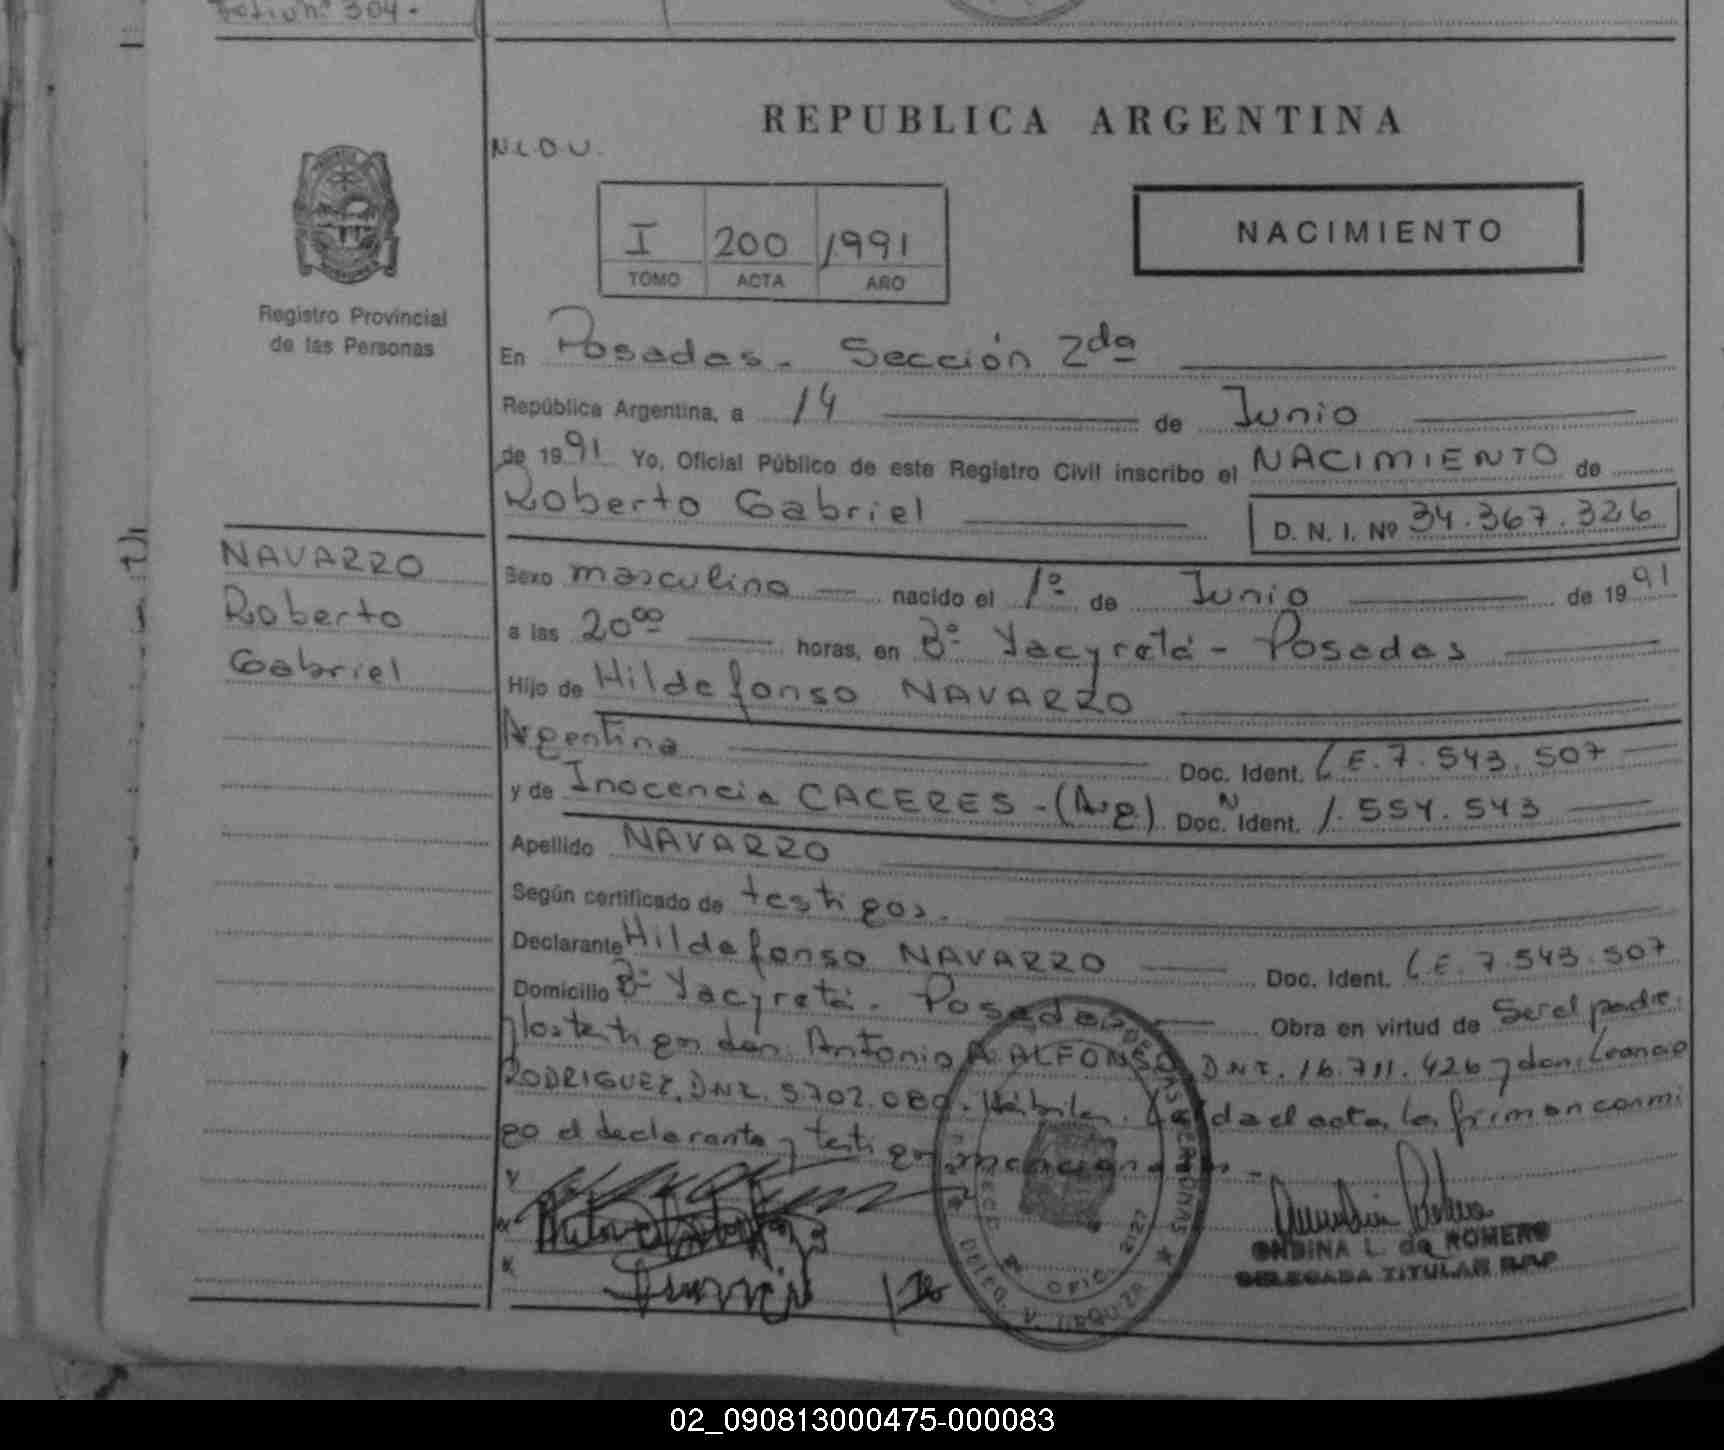 Folio nº 304.-
REPUBLICA ARGENTINA
N.L.O.U.
I 200 1991
TOMO ACTA AÑO
NACIMIENTO
Registro Provincial
de las Personas
En Posadas - Sección 2da
República Argentina, a 14 de Junio
de 1991 Yo, Oficial Público de este Registro Civil inscribo el NACIMIENTO de
Roberto Gabriel D. N. I. Nº 34.367.326
NAVARRO
Roberto
Gabriel
Sexo masculino nacido el 1º de Junio de 1991
a las 20 00 horas, en Bº Yacyretá - Posadas
Hijo de Hildefonso NAVARRO
Argentina Doc. Ident. L.E. 7.543.507
y de Inocencia CACERES - (Arg) Doc. Ident. 1.554.543
Apellido NAVARRO
Según certificado de testigos.
Declarante Hildefonso NAVARRO Doc. Ident. L.E. 7.543.507
Domicilio Bº Yacyretá - Posadas Obra en virtud de Ser el padre.
y los testigos don: Antonio A. ALFONSO, D.N.I. 16.711.426 y don: Leoncio
RODRIGUEZ, D.N.I. 5702.080. Hábiles. Leída el acta, la firman conmi
go el declarante y testigos mencionados -
ONDINA L. de ROMERO
DELEGADA TITULAR R.P.P
02_090813000475-000083